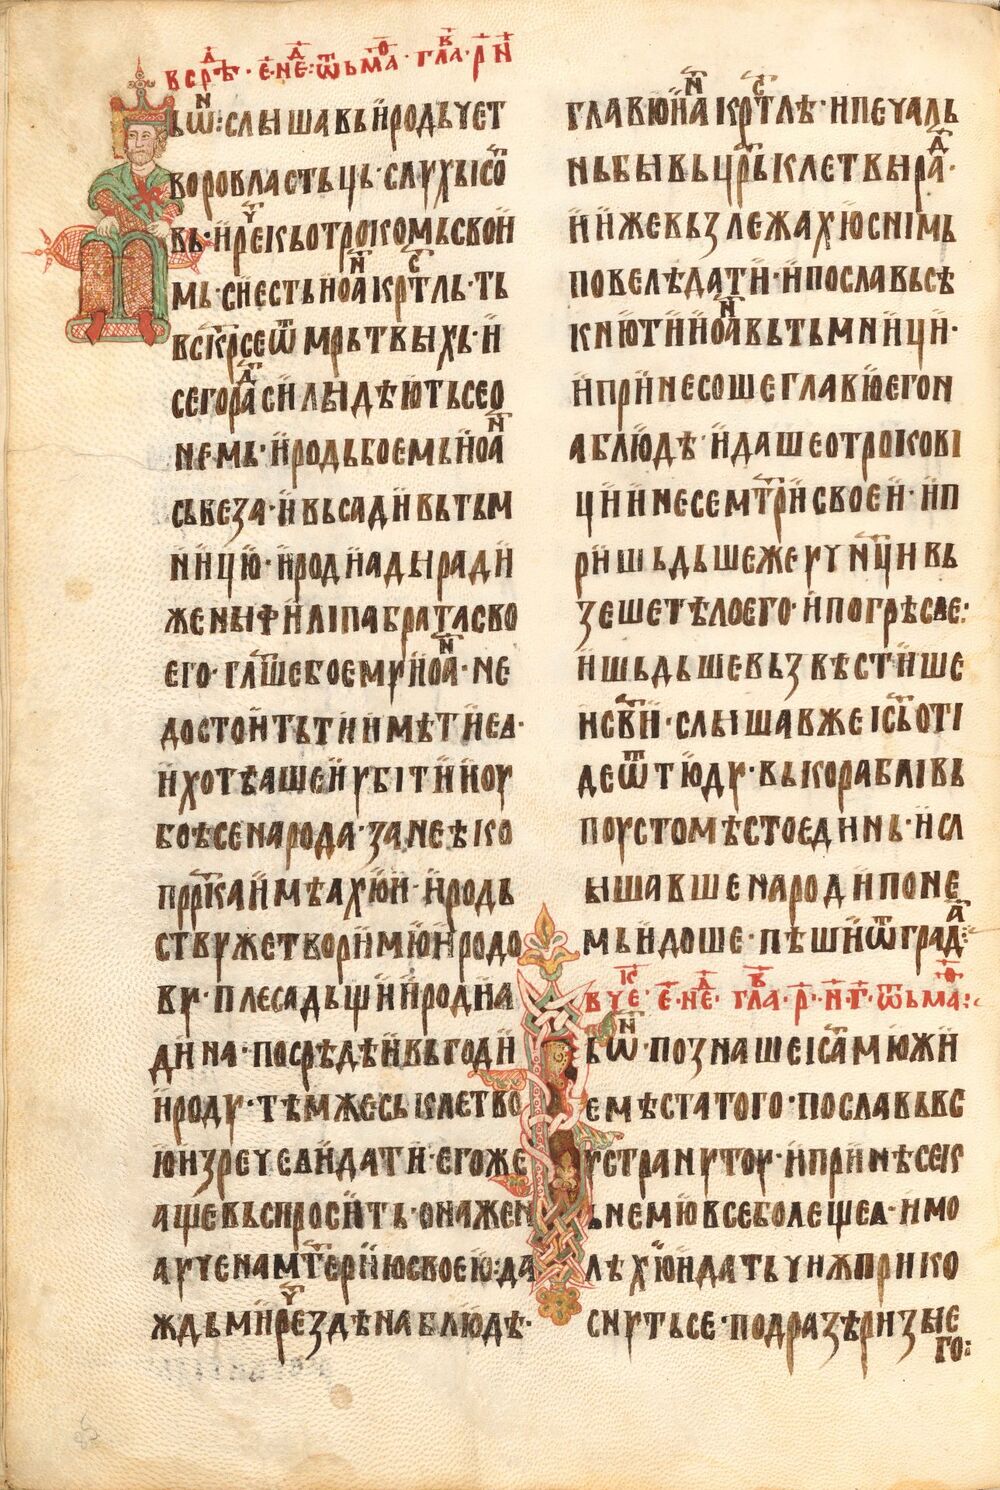 в срѣ · е · не · ѿ ьма · гла · рн
ьѡ҃ : слышавь иродь чет
воровластьць · слухы ісо
вь · и рече кь отрокомь свои
мь · си есть иоа крстль · ть
вскрсе ѿ мрьтвыхь · и
сего ра силы дѣють се о
немь · иродь бо емь иоа
сьвеза · и вьсади вь тьм
ницю · иродиады ради
жены филіпа брата сво
его · глше бо ему иоа · не
достоить ти имѣти еа ·
и хотѣаше и убіти и оу
боѣ се народа · зане ѣко
пррка имѣахю и · иродь
ству же творимю иродо
ву · плеса дьщи иродиа
дина · посрѣдѣ и вь годи
ироду · тѣмже сь клетво
ю изрече еи дати · егоже
аще вьспросить · она жен
аручена мтерию своею : да
ждь ми рече здѣ на блюдѣ ·
главю иоа крстлѣ · и печаль
нь бывь црь клетвы ра ·
и иже вьзлежахю с німь
повелѣ дати · и пославь сѣ
кнюти иоа вь тьмници ·
и принесоше главю его н
а блюдѣ и даше отрокові
ци и несе мтри своеи · и п
ришьдьше же учнци вь
зеше тѣло его · и погрѣсве :
и шьдьше вьзвѣстише
исви · слышав же ісь оті
де ѿтюду · вь кораблі в
поусто мѣсто единь · и сл
ышавше народи по не
мь идоше · пѣши ѿ град :
в че · е · не · гла · р · н · г · ѿ ьма :
ьѡ҃ · познаше іса мюжи
е мѣста того · послаше вьв
у страну тоу · и принѣсе к
ь немю все болещеа · и мо
лѣхю и да ть чиѫ прико
снуть се · подразѣ ризы е
го :